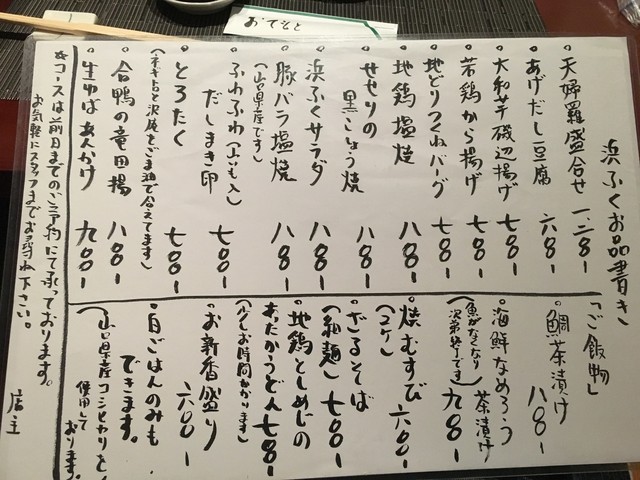 おてもと
浜ふくお品書き
天婦羅盛合せ 一、二八〇-
あげだし豆腐 六八〇-
大和芋磯辺揚げ 七八〇-
若鶏から揚げ 七八〇-
地どりつくねバーグ 七八〇-
地鶏塩焼 八八〇-
せせりの
黒こしょう焼 八八〇-
浜ふくサラダ 八八〇-
豚バラ塩焼 八八〇-
(山口県産です)
ふわふわ(山いも入)
だしまき印 七八〇-
とろたく 七〇〇-
(ネギトロと沢庵をごま油で合えてます)
合鴨の竜田揚 八〇〇-
生ゆばあんかけ 九〇〇-
「ご飯物」
鯛茶漬け 八八〇-
海鮮なめろう
茶漬け
(魚がなくなり
次第終了です) 九八〇-
焼むすび 六〇〇-
(2ケ)
ざるそば
(細麺) 七〇〇-
地鶏としめじの
あたたかうどん 七八〇-
(少しお時間かかります)
お新香盛り 六〇〇-
白ごはんのみも
できます。
(山口県産コシヒカリを
使用して
おります。
☆コースは前日までのご予約にて承っております。
お気軽にスタッフまでお尋ね下さい。
店主